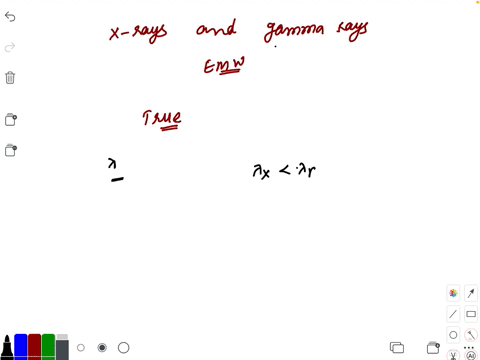 x-rays and gamma rays
EMW
True
λ
λx < λr